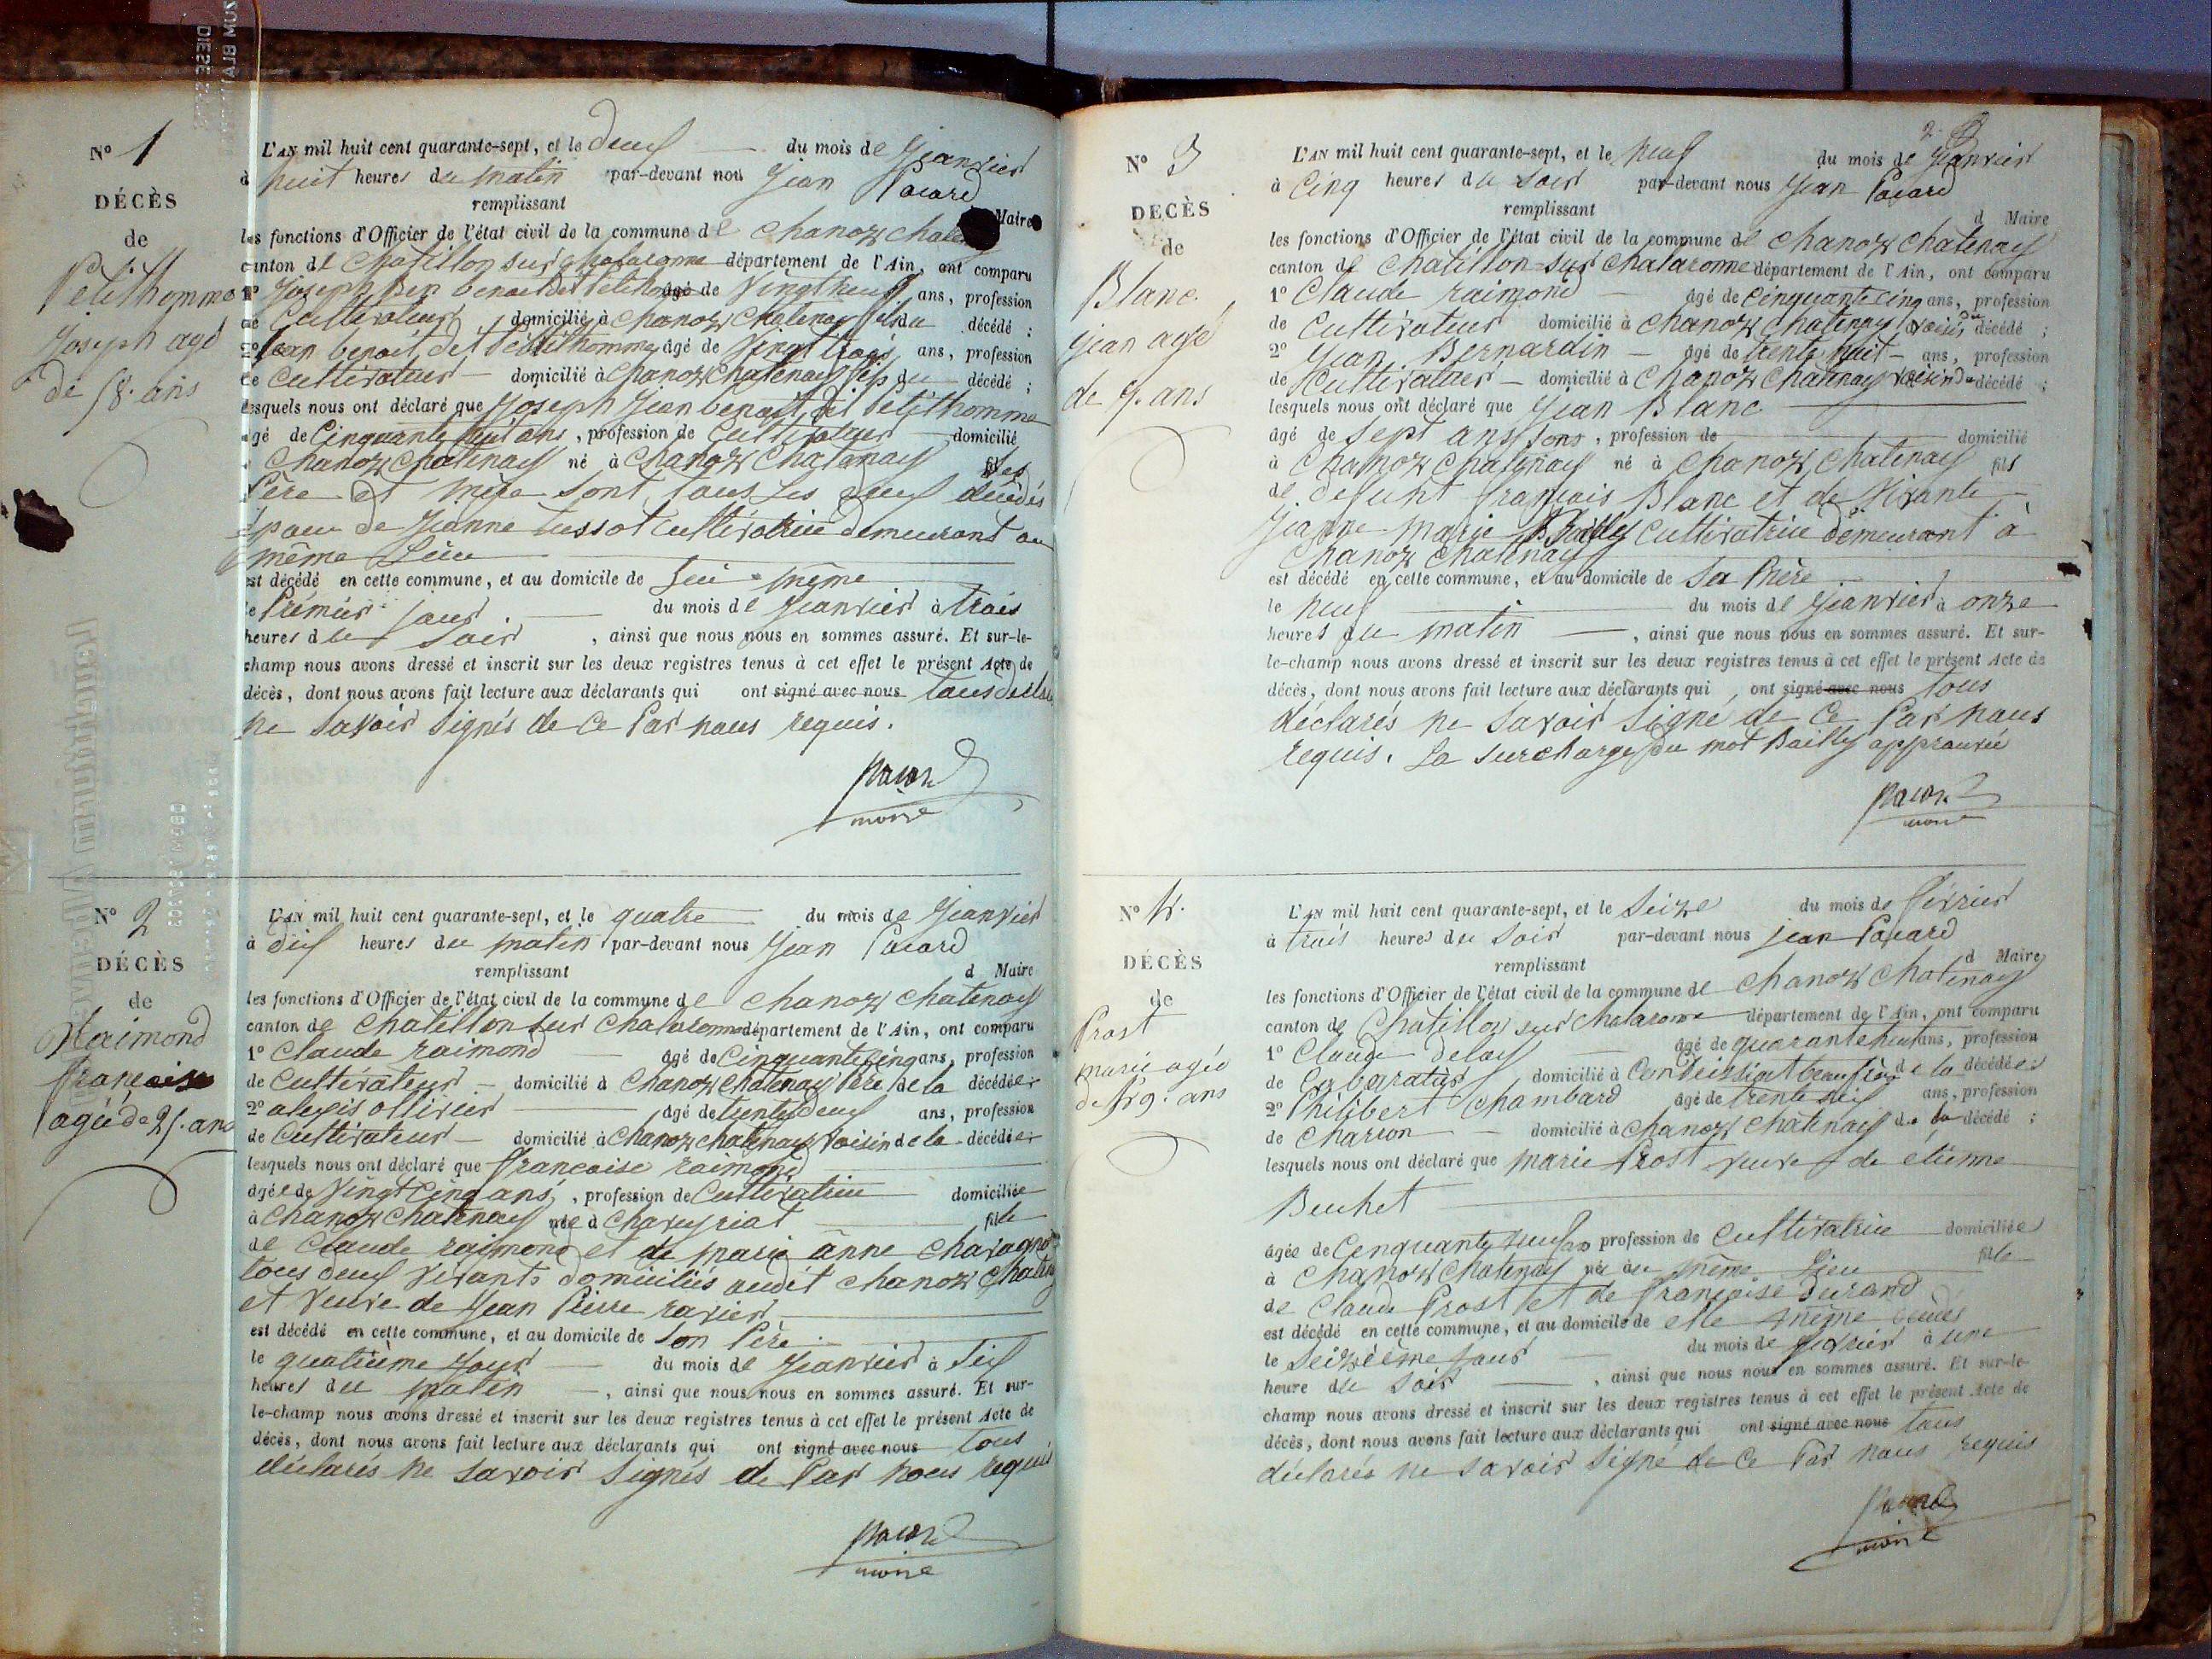 N° 1
DÉCÈS
de
Petithomme
Joseph agé
de 58. ans
L'AN mil huit cent quarante-sept, et le deux du mois de Janvier
à huit heures du matin par-devant nous Jean Pacard
remplissant Maire
les fonctions d'Officier de l'état civil de la commune de Chanoz Chatenay
canton de Chatillon sur Chalaronne département de l'Ain, ont comparu
1° Joseph benoit dit Petithomme agé de Vingt neuf ans, profession
de Cultivateur domicilié à Chanoz Chatenay fils du décédé ;
2° Jean benoit dit Petithomme âgé de Vingt trois ans, profession
de Cultivateur domicilié à Chanoz Chatenay fils du décédé ;
lesquels nous ont déclaré que Joseph Jean benoit dit Petithomme
agé de Cinquante huit ans, profession de Cultivateur domicilié
à Chanoz Chatenay né à Chanoz Chatenay
Père et mère sont tous les deux décédés
Epoux de Jeanne Tussot Cultivatrice demeurant au
même Lieu
est décédé en cette commune, et au domicile de Lui même
le Prémier jour du mois de Janvier à trois
heures du soir, ainsi que nous nous en sommes assuré. Et sur-le-
champ nous avons dressé et inscrit sur les deux registres tenus à cet effet le présent Acte de
décès, dont nous avons fait lecture aux déclarants qui ont signé avec nous tous déclarés
ne Savoir Signés de Ce Par nous requis.
Pacard
maire
N° 2
DÉCÈS
de
Raimond
françoise
agée de 25. ans
L'AN mil huit cent quarante-sept, et le quatre du mois de Janvier
à dix heures du matin par-devant nous Jean Pacard
remplissant d Maire
les fonctions d'Officier de l'état civil de la commune de Chanoz Chatenay
canton de Chatillon sur Chalaronne département de l'Ain, ont comparu
1° Claude raimond âgé de Cinquante Cinq ans, profession
de Cultivateur domicilié à Chanoz Chatenay Père de la décédée
2° alexis ollivier âgé de trente deux ans, profession
de Cultivateur domicilié à Chanoz Chatenay Voisin de la décédée
lesquels nous ont déclaré que françoise raimond
agée de Vingt Cinq ans, profession de Cultivatrice domiciliée
à Chanoz Chatenay née à Chaveyriat fille
de Claude raimond et de marie anne
tous deux Vivants domiciliés audit Chanoz Chatenay
et Veuve de Jean Pierre ravier
est décédé en cette commune, et au domicile de Son Père
le quatrième Jour du mois de Janvier à Six
heures du matin, ainsi que nous nous en sommes assuré. Et sur-
le-champ nous avons dressé et inscrit sur les deux registres tenus à cet effet le présent Acte de
décès, dont nous avons fait lecture aux déclarants qui ont signé avec nous tous
déclarés ne Savoir Signés de Par nous requis
Pacard
maire
2
N° 3
DECÈS
de
Blanc
Jean agé
de 7. ans
L'AN mil huit cent quarante-sept, et le neuf du mois de Janvier
à Cinq heures du Soir par-devant nous Jean Pacard
remplissant d Maire
les fonctions d'Officier de l'état civil de la commune de Chanoz Chatenay
canton de Chatillon sur Chalaronne département de l'Ain, ont comparu
1° Claude raimond âgé de Cinquante Cinq ans, profession
de Cultivateur domicilié à Chanoz Chatenay Voisin du décédé ;
2° Jean Bernardin âgé de trente huit ans, profession
de Cultivateur domicilié à Chanoz Chatenay Voisin du décédé ;
lesquels nous ont déclaré que Jean Blanc
âgé de Sept ans Sans, profession de domicilié
à Chanoz Chatenay né à Chanoz Chatenay fils
de défunt françois Blanc et de Vivante
Jeanne Marie Bailly Cultivatrice demeurant à
Chanoz Chatenay
est décédé en cette commune, et au domicile de Sa Mère
le neuf du mois de Janvier à onze
heures du matin, ainsi que nous nous en sommes assuré. Et sur-
le-champ nous avons dressé et inscrit sur les deux registres tenus à cet effet le présent Acte de
décès, dont nous avons fait lecture aux déclarants qui ont signé avec nous tous
déclarés ne Savoir Signé de Ce Par nous
requis. La Surcharge du mot Bailly approuvée
Pacard
maire
N° 4.
DÉCÈS
de
Prost
marie agée
de 59. ans
L'AN mil huit cent quarante-sept, et le Seize du mois de février
à trois heures du Soir par-devant nous Jean Pacard
remplissant d Maire
les fonctions d'Officier de l'état civil de la commune de Chanoz Chatenay
canton de Chatillon sur Chalaronne département de l'Ain, ont comparu
1° Claude delay âgé de quarante huit ans, profession
de domicilié à Condeissiat beau frère de la décédée
2° Philibert Chambard âgé de trente six ans, profession
de Charron domicilié à Chanoz Chatenay de la décédé ;
lesquels nous ont déclaré que marie Prost veuve de etienne
Beuchet
agée de Cinquante neuf ans profession de Cultivatrice domiciliée
à Chanoz Chatenay née au même Lieu fille
de Claude Prost et de françoise Durand
est décédé en cette commune, et au domicile de elle même
le Seizième Jour du mois de février à une
heure du Soir, ainsi que nous nous en sommes assuré. Et sur-le-
champ nous avons dressé et inscrit sur les deux registres tenus à cet effet le présent Acte de
décès, dont nous avons fait lecture aux déclarants qui ont signé avec nous tous
déclarés ne Savoir Signé de Ce Par nous requis
Pacard
maire